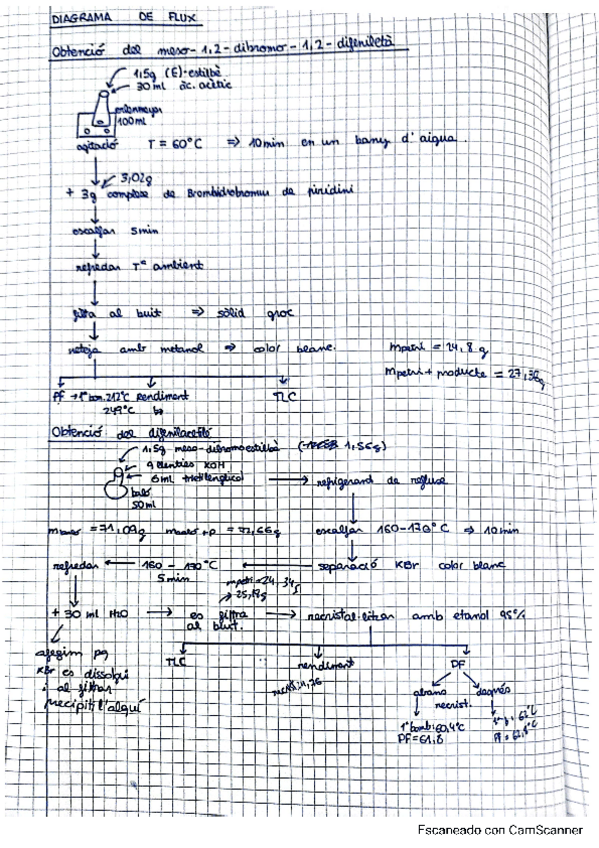 DIAGRAMA DE FLUX
Obtenció del meso-1,2-dibromo-1,2-difeniletà
1,5g (E)-estilbè
30ml àc. acètic
erlenmeyer
100ml
agitació T = 60°C ⇒ 10min en un bany d'aigua.
3,02g
+ 3g complexe de Bromhidrobromur de piridini
escalfar 5min
refredar Tª ambient
filtra al buit ⇒ sòlid groc
neteja amb metanol ⇒ color blanc.
mpetri = 24,8 g
mpetri + producte = 27,36g
PF → 1ª bom. 212°C Rendiment TLC
249°C
Obtenció del difenilacetilé
1,5g meso-dibromoestilbà ( 1,56g)
9 llenties KOH
6ml trietilenglicol → refrigerant de reflux
baló
50ml
= 71,09g + p = 72,66g escalfar 160-170°C ⇒ 10min
refredar ← 160 - 170°C ← separació KBr color blanc
5min
mpetri = 24,34g
→ 25,19g
+ 30 ml H2O → es filtra → recristal·litzar amb etanol 95%
al buit.
afegim pq
KBr es dissolgui
i al filtrar
precipiti l'alquí
TLC rendiment PF
abans després
recrist.
1ª bomb: 60,4°C
PF = 61,8
62°C
PF = 62,8°C
Escaneado con CamScanner